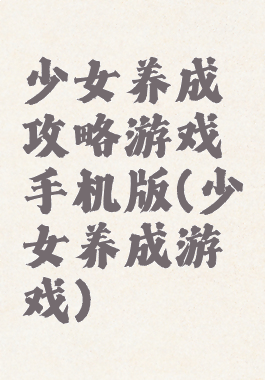 少女养成
攻略游戏
手机版(少
女养成游
戏)